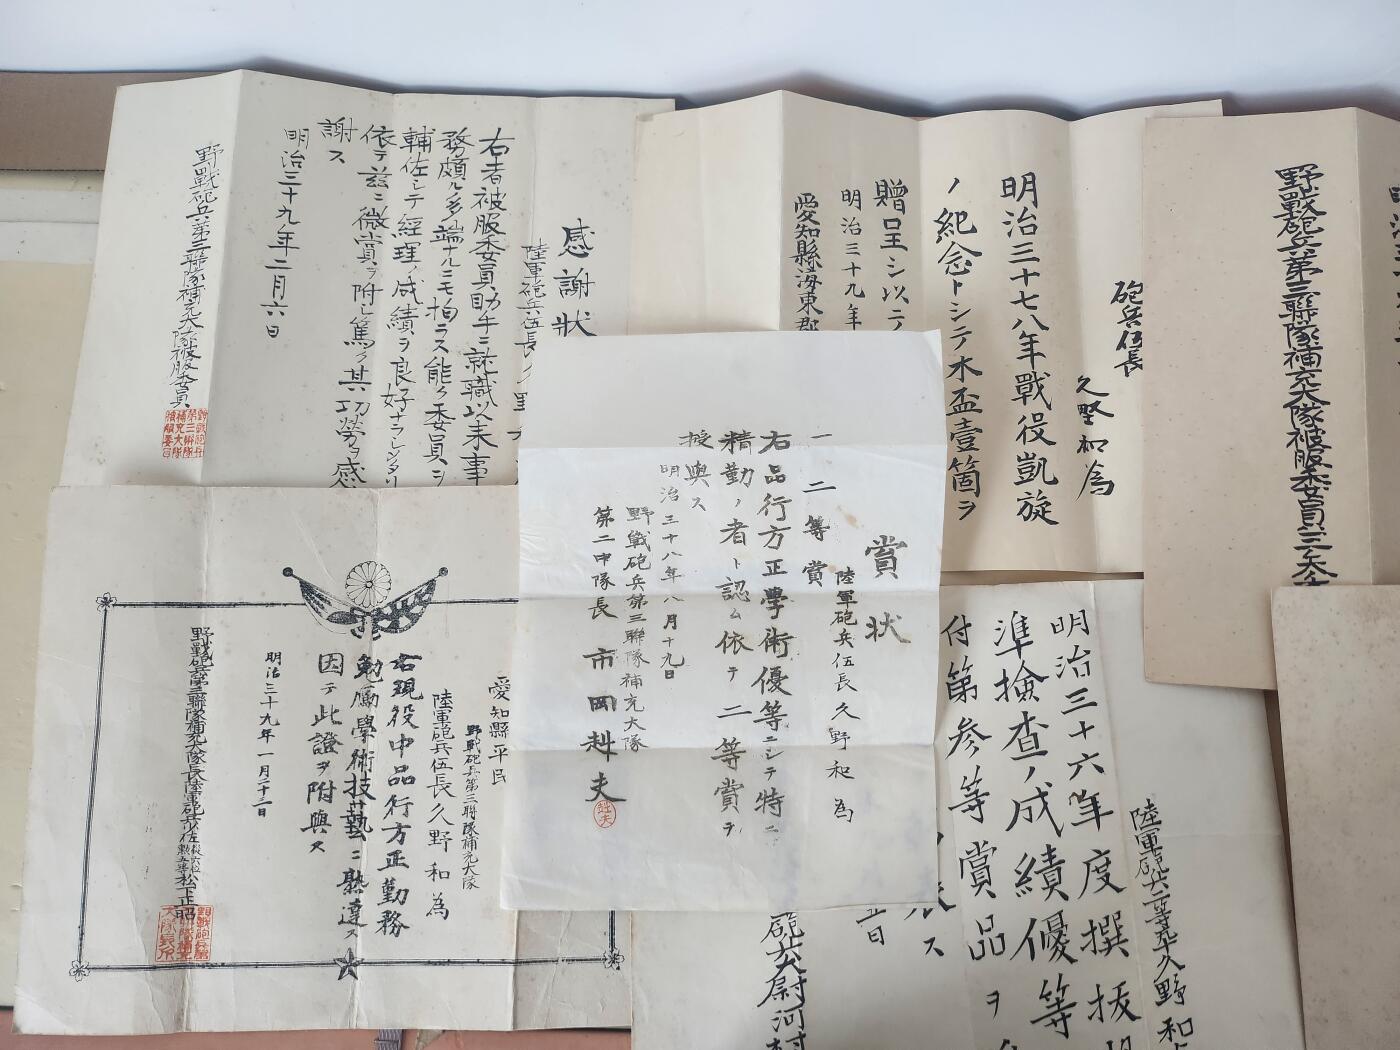 感謝状
陸軍砲兵伍長
右者被服委員助手ニ就職以来事
務頗ル多端ナルニモ拘ラス能ク委員ヲ
輔佐シテ経理ノ成績ヲ良好ナラシメタリ
依テ茲ニ微賞ヲ附シ篤ク其功労ヲ感
謝ス
明治三十九年二月六日
野戰砲兵第三聯隊補充大隊被服委員
砲兵伍長
久野和為
明治三十七八年戰役凱旋
ノ紀念トシテ木盃壹箇ヲ
贈呈シ以テ
明治三十九年
愛知縣海東郡
野戰砲兵第三聯隊補充大隊被服委員
賞状
陸軍砲兵伍長久野和為
一二等賞
右品行方正學術優等ニシテ特ニ
精勤ノ者ト認ム依テ二等賞ヲ
授與ス
明治三十八年八月十九日
野戰砲兵第三聯隊補充大隊
第二中隊長市岡赳夫
愛知縣平民
野戰砲兵第三聯隊補充大隊
陸軍砲兵伍長久野和為
右現役中品行方正勤務
勉励學術技藝ニ熟達ス
因テ此證ヲ附與ス
明治三十九年一月二十三日
野戰砲兵第三聯隊補充大隊長陸軍砲兵少佐從六位勲五等松下正昭
陸軍砲兵二等卒久野和
明治三十六年度撰抜
準撿査ノ成績優等
付第参等賞品ヲ
ス
五日
砲兵大尉河村